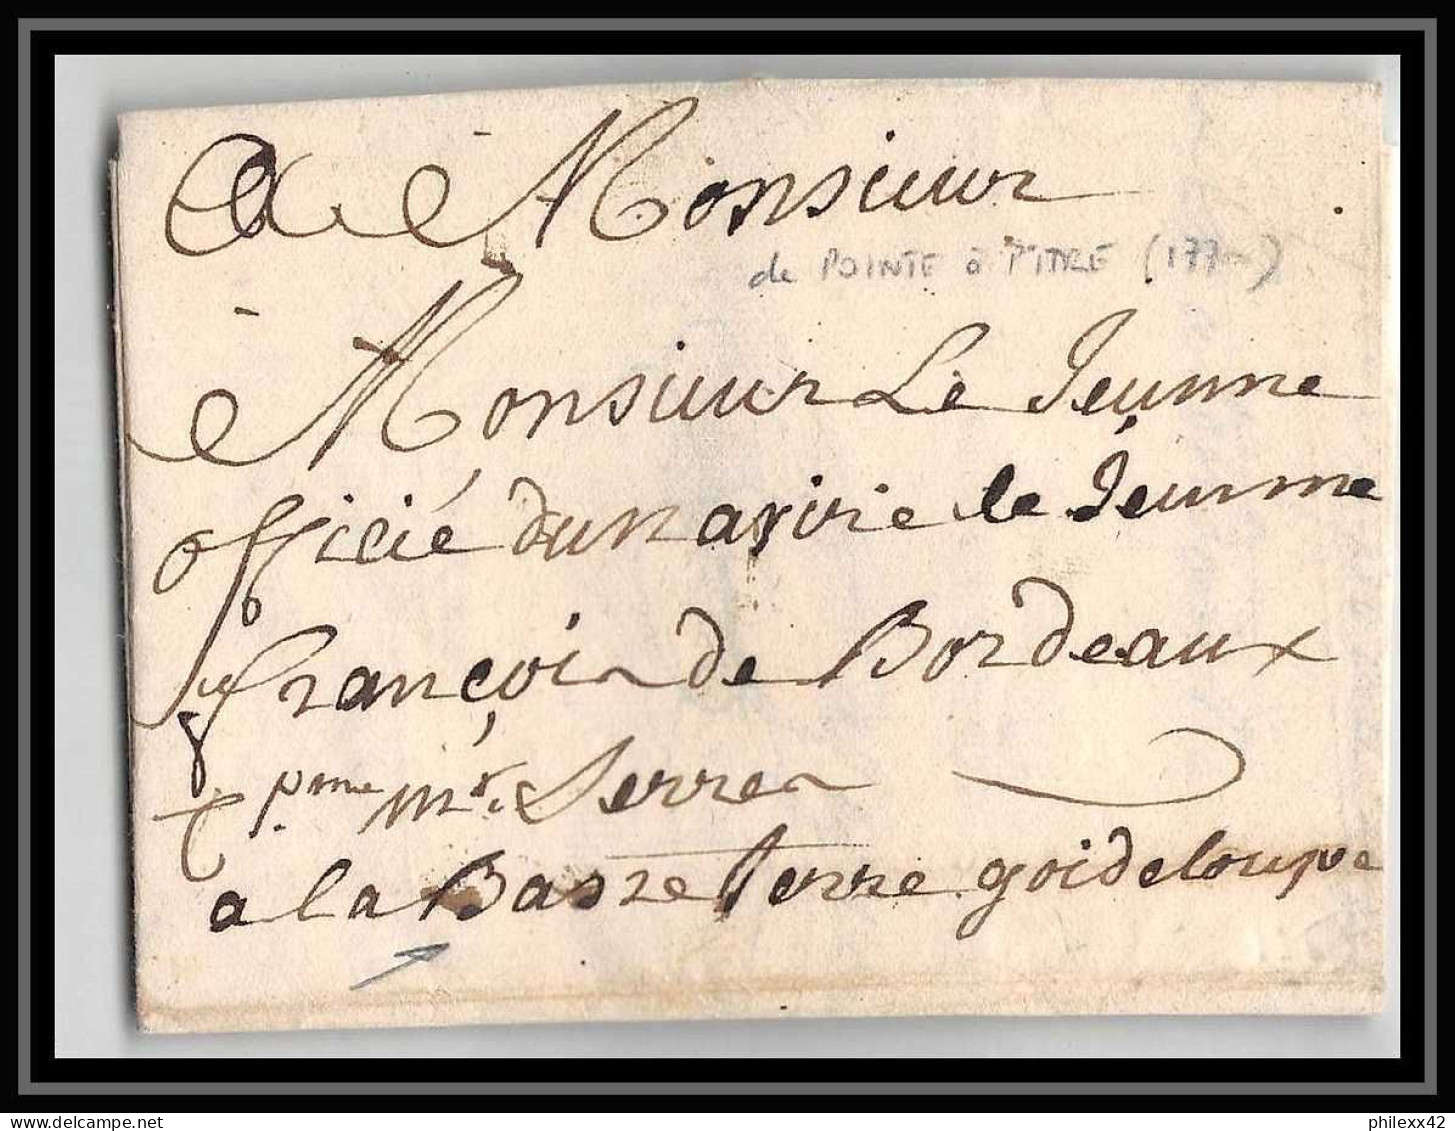 A Monsieur
de POINTE à PITRE (177~)
à Monsieur Le Jeunne
officié dun navire le Jeunne
françois de Bordeaux
pme Mr. Serres
a la Basse terre goideloupe
philexx42